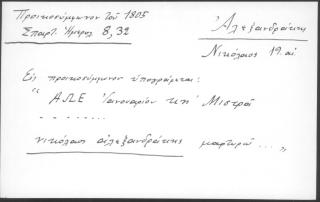 Προικοσύμφωνον τοῦ 1805
Σπαρτ. Ἡμερολ 8, 32
Ἀλεξανδράκης
Νικόλαος 19 αἰ.
Εἰς προικοσύμφωνον ὑπογράφεται:
"ΑΩΕ Ἰανουαρίου κη' Μιστρᾶ
- - - - - - -
νικόλαος ἀλεξανδράκης μαρτυρῶ ... "